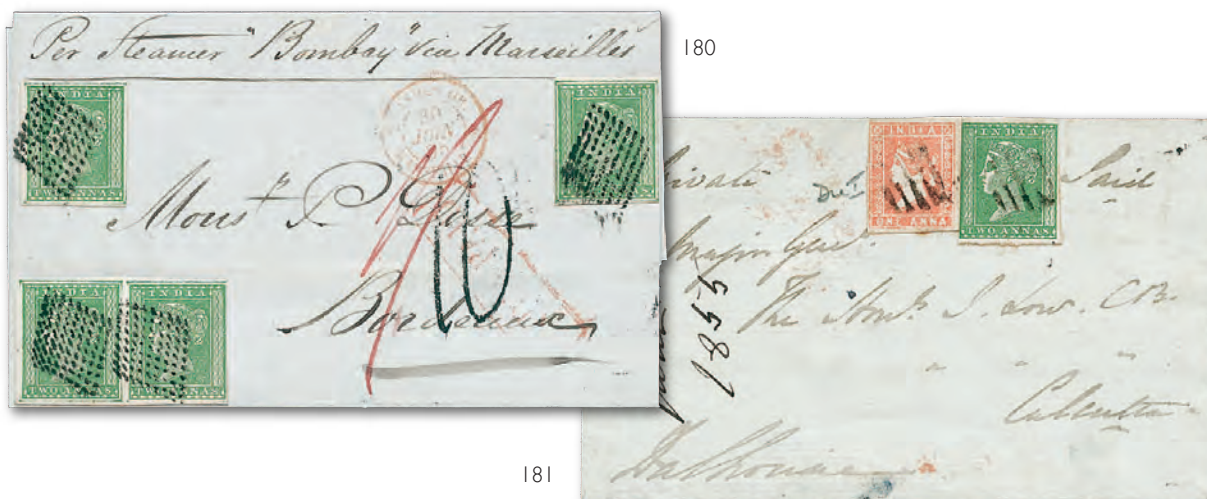 Per Steamer "Bombay" via Marseilles
180
INDIA
TWO ANNAS
INDIA
TWO ANNAS
30
JUIN
Monsr P.
10
Bordeaux
INDIA
TWO ANNAS
INDIA
TWO ANNAS
INDIA
ONE ANNA
INDIA
TWO ANNAS
Private
Paid
Die I
Major Genl.
The Honble. J. Low. CB.
Calcutta
Dalhousie
1855
181